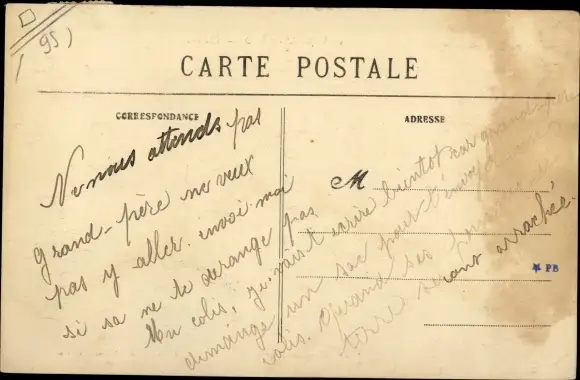 95)
CARTE POSTALE
CORRESPONDANCE
ADRESSE
M
Ne nous attends pas
grand-père ne veux
pas y aller. envoi moi
si sa ne te derange pas
un colis. je vais t ecrire bientot car grand-père
dimange un sac pour l'envoyé
colis. Quand ses
terre seront arraché.
PB